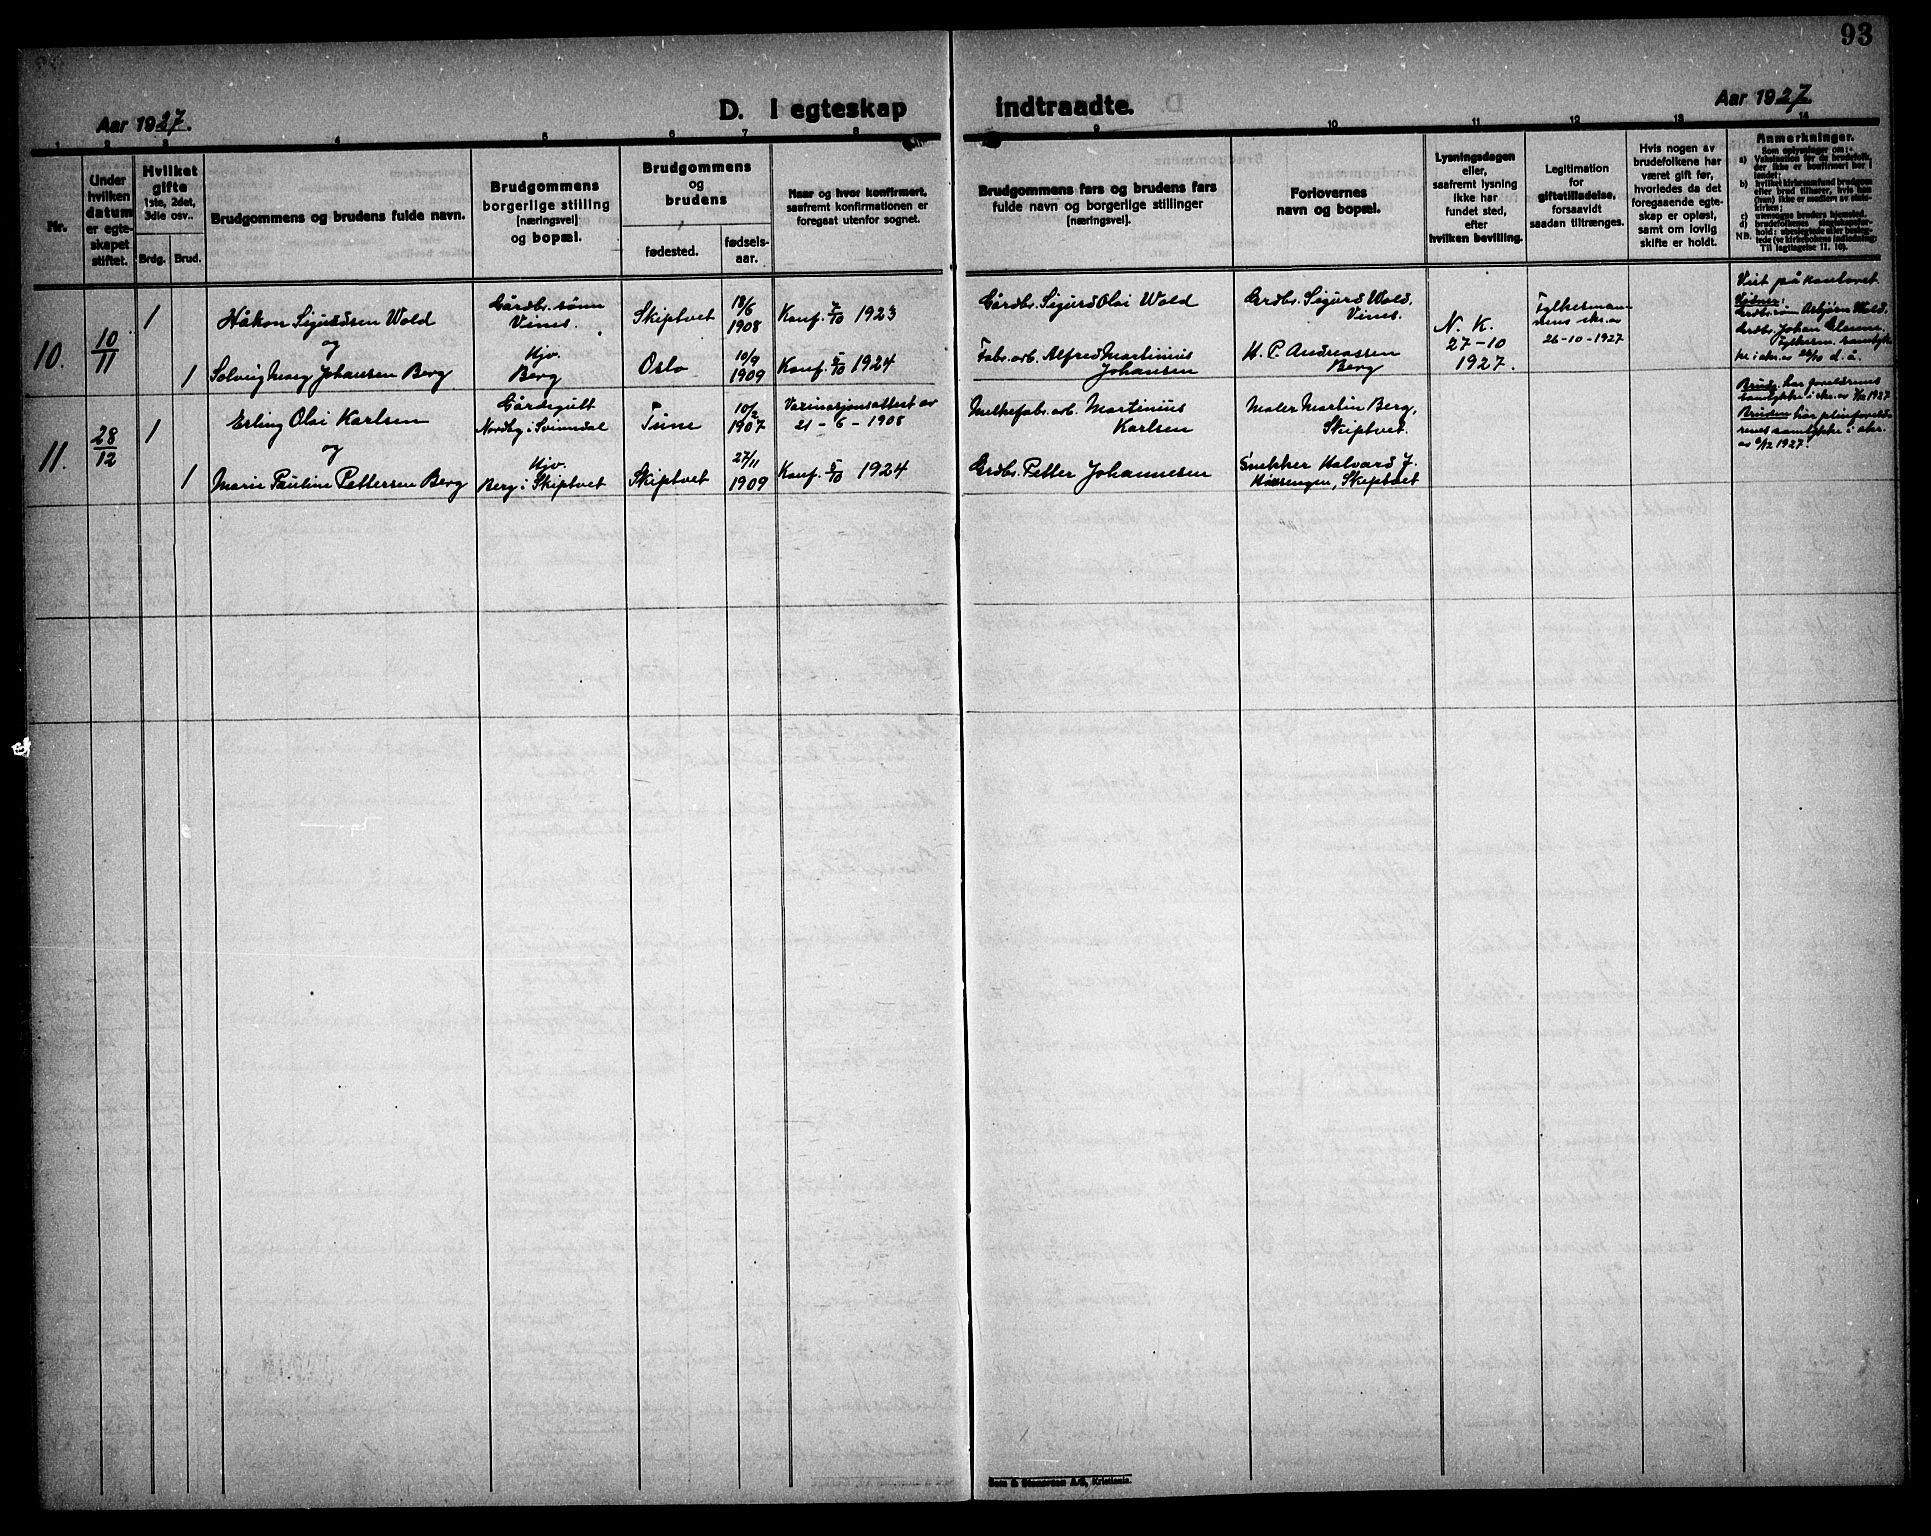 93
Aar 1927.
D. I egteskap indtraadte.
Aar 1927.
1 2 3 4 5 6 7 8 9 10 11 12 13 14
Nr.
Under
hvilken
datum
er egte-
skapet
stiftet.
Hvilket
gifte
1ste, 2det,
3die osv..
Brdg. Brud.
Brudgommens og brudens fulde navn.
Brudgommens
borgerlige stilling
[næringsvei]
og bopæl.
Brudgommens
og
brudens
fødested.
fødsels-
aar.
Naar og hvor konfirmert,
saafremt konfirmationen er
foregaat utenfor sognet.
Brudgommens fars og brudens fars
fulde navn og borgerlige stillinger
[næringsvei]
Forlovernes
navn og bopæl.
Lysningsdagen
eller,
saafremt lysning
ikke har
fundet sted,
efter
hvilken bevilling.
Legitimation
for
giftetilladelse,
forsaavidt
saadan tiltrænges.
Hvis nogen av
brudefolkene har
været gift før,
hvorledes da det
foregaaende egte-
skap er opløst,
samt om lovlig
skifte er holdt.
Anmerkninger.
Som oplysninger om:
10.
10/11
1
Håkon Sigurdsen Wold
og
1
Solveig Mary Johansen Berg
Gårdbr. sønn
Vines.
Hjv.
Berg
Skiptvet
Oslo
18/6
1908
10/9
1909
Konf. 7/10 1923
Konf. 5/10 1924
Gårdbr. Sigurd Olai Wold
Fabr. arb. Alfred Martinius
Johansen
Grdbr. Sigurd Wold,
Vines.
H. P. Andreassen
Berg
N. K.
27-10
1927.
Fylkesman-
nens skr. av
26-10-1927
Viet på kontoret
11.
28/12
1
Erling Olai Karlsen
og
1
Marie Pauline Pettersen Berg
Gårdsgutt
Nordby i Svinndal
Hjv.
Berg i Skiptvet
Tune
Skiptvet
10/2
1907
27/11
1909
Vaxinasjonsattest av
21-6-1908
Konf. 5/10 1924
Melkefabr. arb. Martinius
Karlsen
Grdbr. Petter Johannesen
Maler Martin Berg,
Skiptvet.
Snekker Halvard J.
Skiptvet
Brudg. har foreldrenes